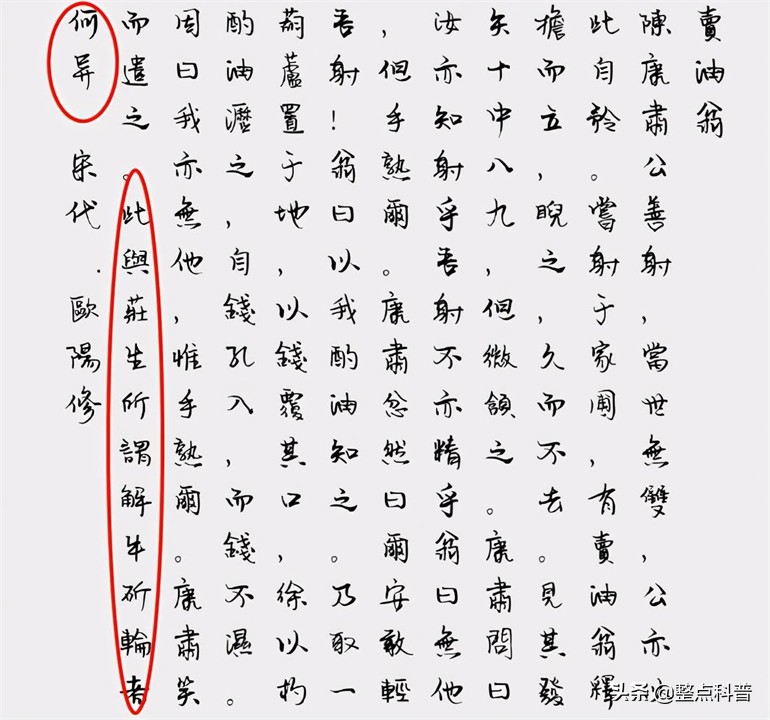 賣油翁
陳康肅公善射,當世無雙,公亦
此自矜。嘗射于家圃,有賣油翁釋
擔而立,睨之,久而不去。見其發
矢十中八九,但微頷之。康肅問曰
汝亦知射乎吾射不亦精乎翁曰無他
,但手熟爾。康肅忿然曰爾安敢輕
吾射!翁曰以我酌油知之。乃取一
葫蘆置于地,以錢覆其口,徐以杓
酌油瀝之,自錢孔入,而錢不濕。
因曰我亦無他,惟手熟爾。康肅笑
而遣之。此與莊生所謂解牛斫輪者
何异 宋代.歐陽修
头条@整点科普